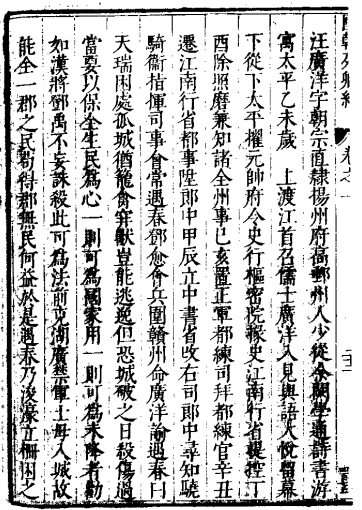 汪廣洋字朝宗直隸揚州府高郵州人少從余闕學通詩書游
寓太平乙未歲　上渡江首召儒士廣洋入見與語大悅留幕
下從下太平擢元帥府令史行樞密院掾史江南行省提控丁
酉除照磨兼知諸全州事己亥置正軍都練司拜都練官辛丑
遷江南行省都事陞郎中甲辰立中書省改右司郎中尋知驍
騎衛指揮司事會常遇春鄧愈會兵圍贛州命廣洋諭遇春曰
天瑞困處孤城猶籠禽穽獸豈能逃逸但恐城破之日殺傷過
當要以保全生民為心一則可為國家用一則可為未降者勸
如漢將鄧禹不妄誅殺此可為法前克湖廣禁軍士毋入城故
能全一郡之民苟得郡無民何益於是遇春乃浚濠立柵困之